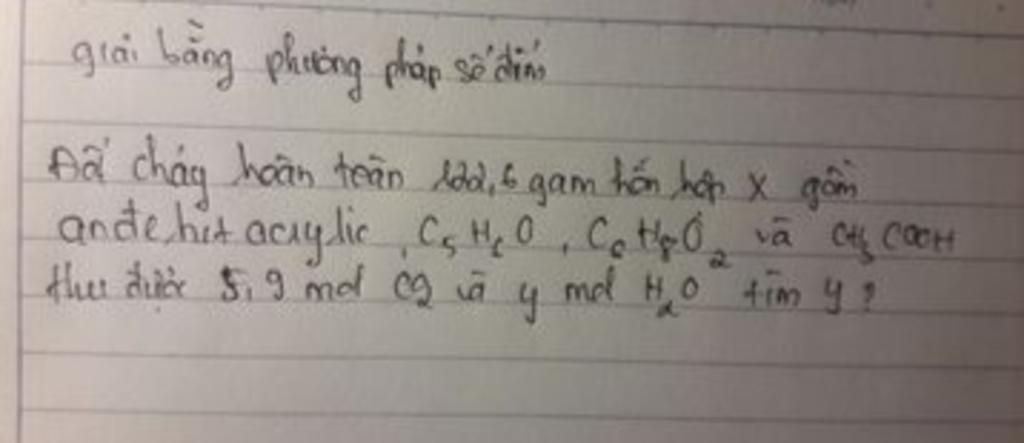 giải bằng phương pháp số đếm
Đốt cháy hoàn toàn 122,6 gam hỗn hợp X gồm
anđehit acrylic, C5H6O, C6H8O2 và CH3COOH
thu được 5,9 mol CO2 và y mol H2O tìm y?